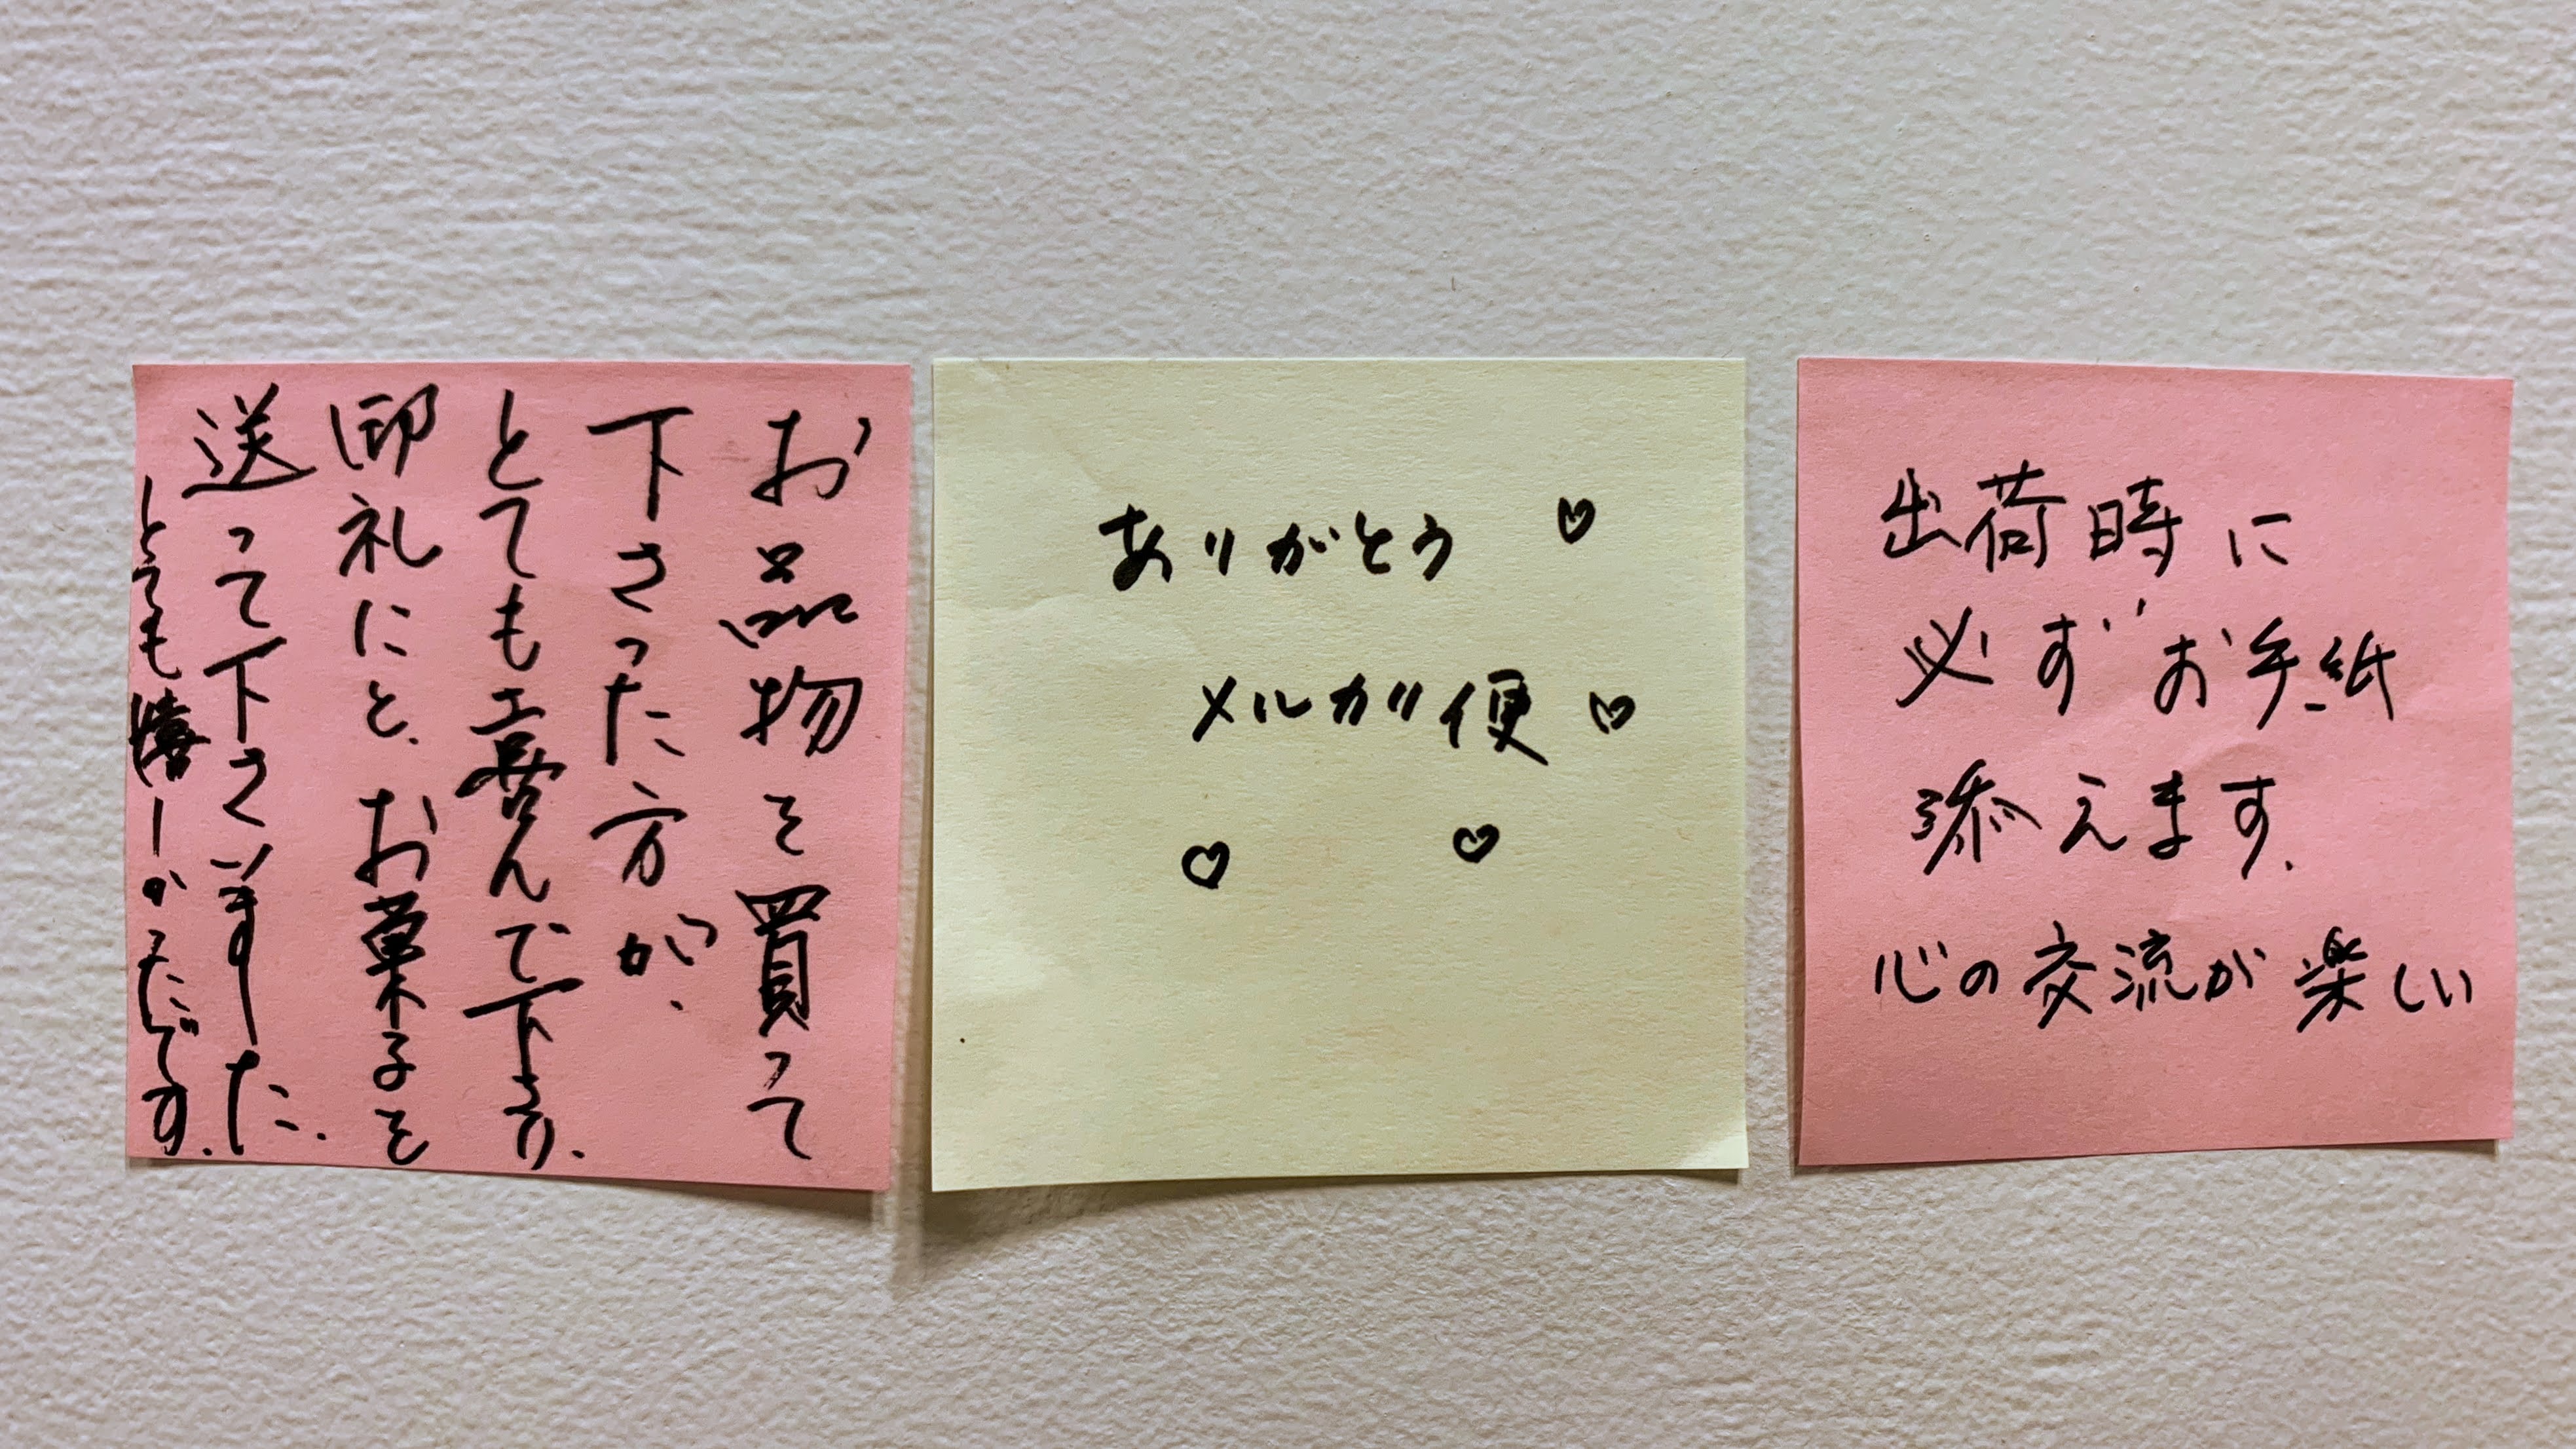 お品物を買って
下さった方が、
とても喜んで下さり、
御礼にと、お菓子を
送って下さいました。
とても嬉しかったです。
ありがとう ♡
メルカリ便 ♡
♡ ♡
出荷時に
必ずお手紙
添えます。
心の交流が楽しい